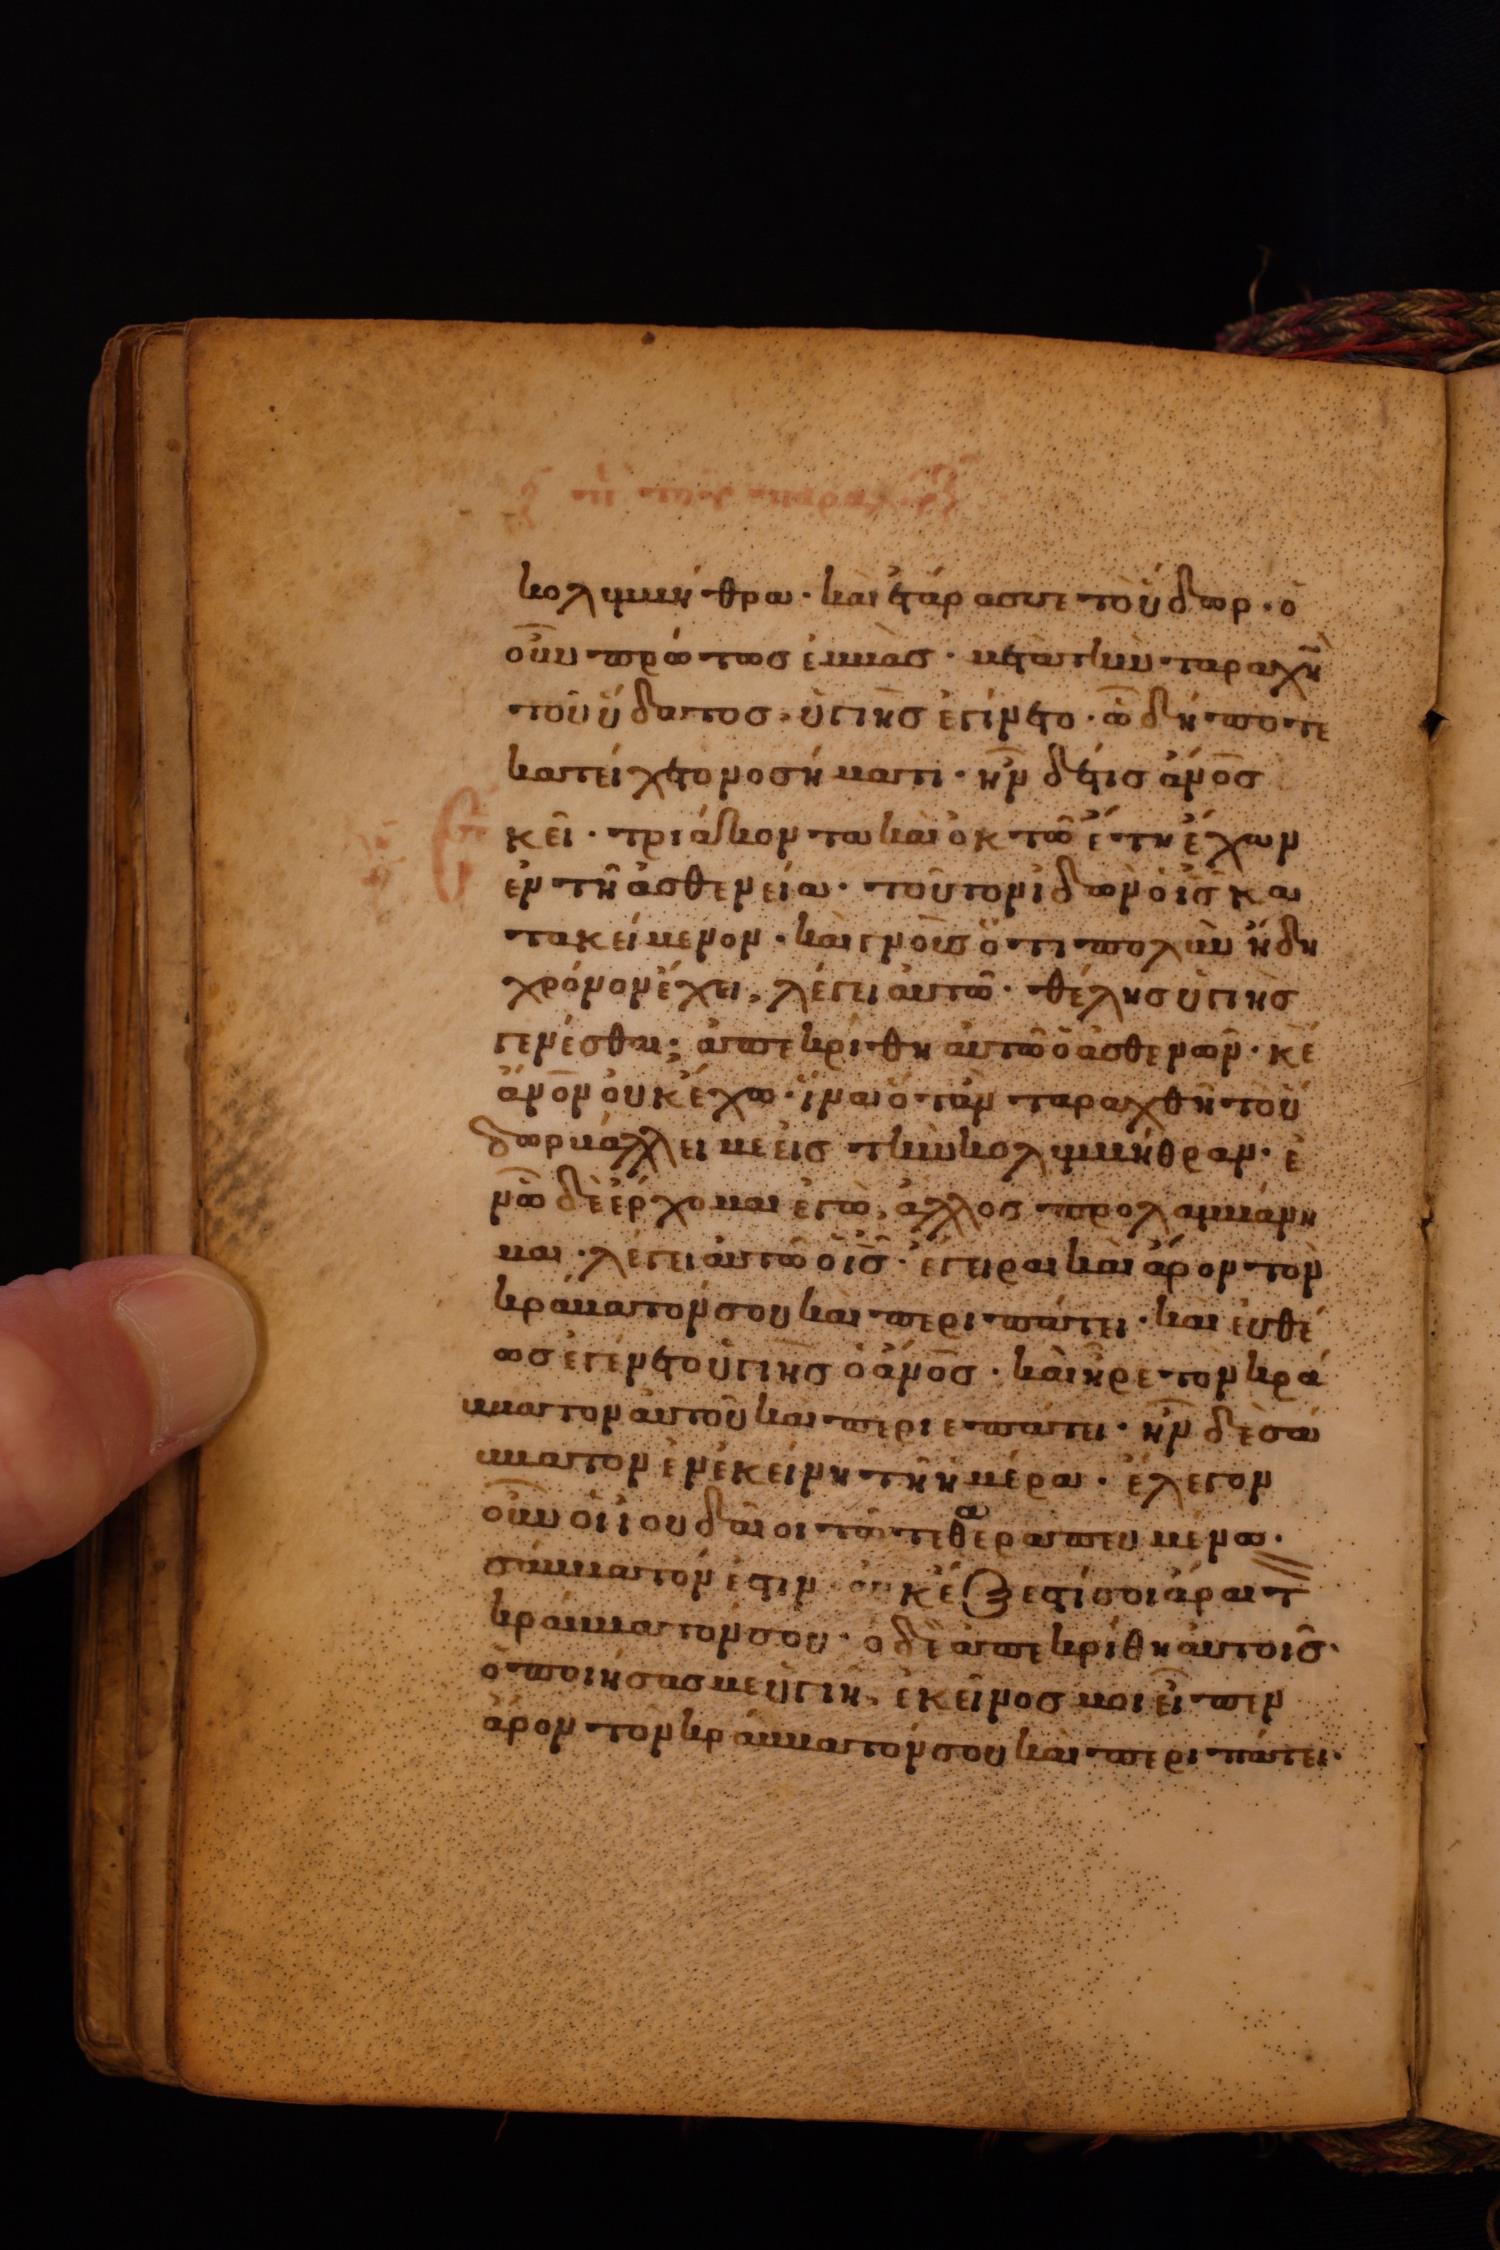 κολυμβήθρα· καὶ ἐτάρασσε τὸ ὕδωρ· ὁ
οὖν πρῶτος ἐμβὰς· μετὰ τὴν ταραχὴν
τοῦ ὕδατος, ὑγιὴς ἐγίνετο· ὧ δήποτε
κατείχετο νοσήματι· ἦν δέ τις ἄνος
ἐκεῖ· τριάκοντα καὶ ὀκτὼ ἔτη ἔχων
ἐν τῆ ἀσθενεία· τοῦτον ἰδὼν ὁ ις κα
τακείμενον· καὶ γνοὺς ὅτι πολὺν ἤδη
χρόνον ἔχει, λέγει αὐτῶ· θέλης ὑγιὴς
γενέσθαι; ἀπεκρίθη αὐτῶ ὁ ἀσθενῶν· κέ
ἄνον οὐκ ἔχω· ἵνα ὅταν ταραχθῆ τὸ ὕ
δωρ βάλλει με εἰς τὴν κολυμβήθραν· ἐ
νῶ δὲ ἔρχομαι ἐγὼ, ἄλλος προλαμβάνη
μαι· λέγει αὐτῶ ὁ ις· ἔγειραι καὶ ἆρον τὸν
κράβατόν σου καὶ περιπάτει· καὶ εὐθέ
ως ἐγένετο ὑγιὴς ὁ ἄνος· καὶ ἦρε τὸν κρά
βατον αὐτοῦ καὶ περιεπάτει· ἦν δὲ σά
βατον ἐν ἐκείνη τῆ ἡμέρα· ἔλεγον
οὖν οἱ ἰουδαῖοι τῶ τεθεραπευμένω·
σάββατόν ἐστιν οὐκ ἔξεστί σοι ἆραι τ
κράββατόν σου· ὁ δὲ ἀπεκρίθη αὐτοῖς·
ὁ ποιήσας με ὑγιῆ, ἐκεῖνός μοι εἶπεν
ἆρον τὸν κράββατόν σου καὶ περιπάτει·